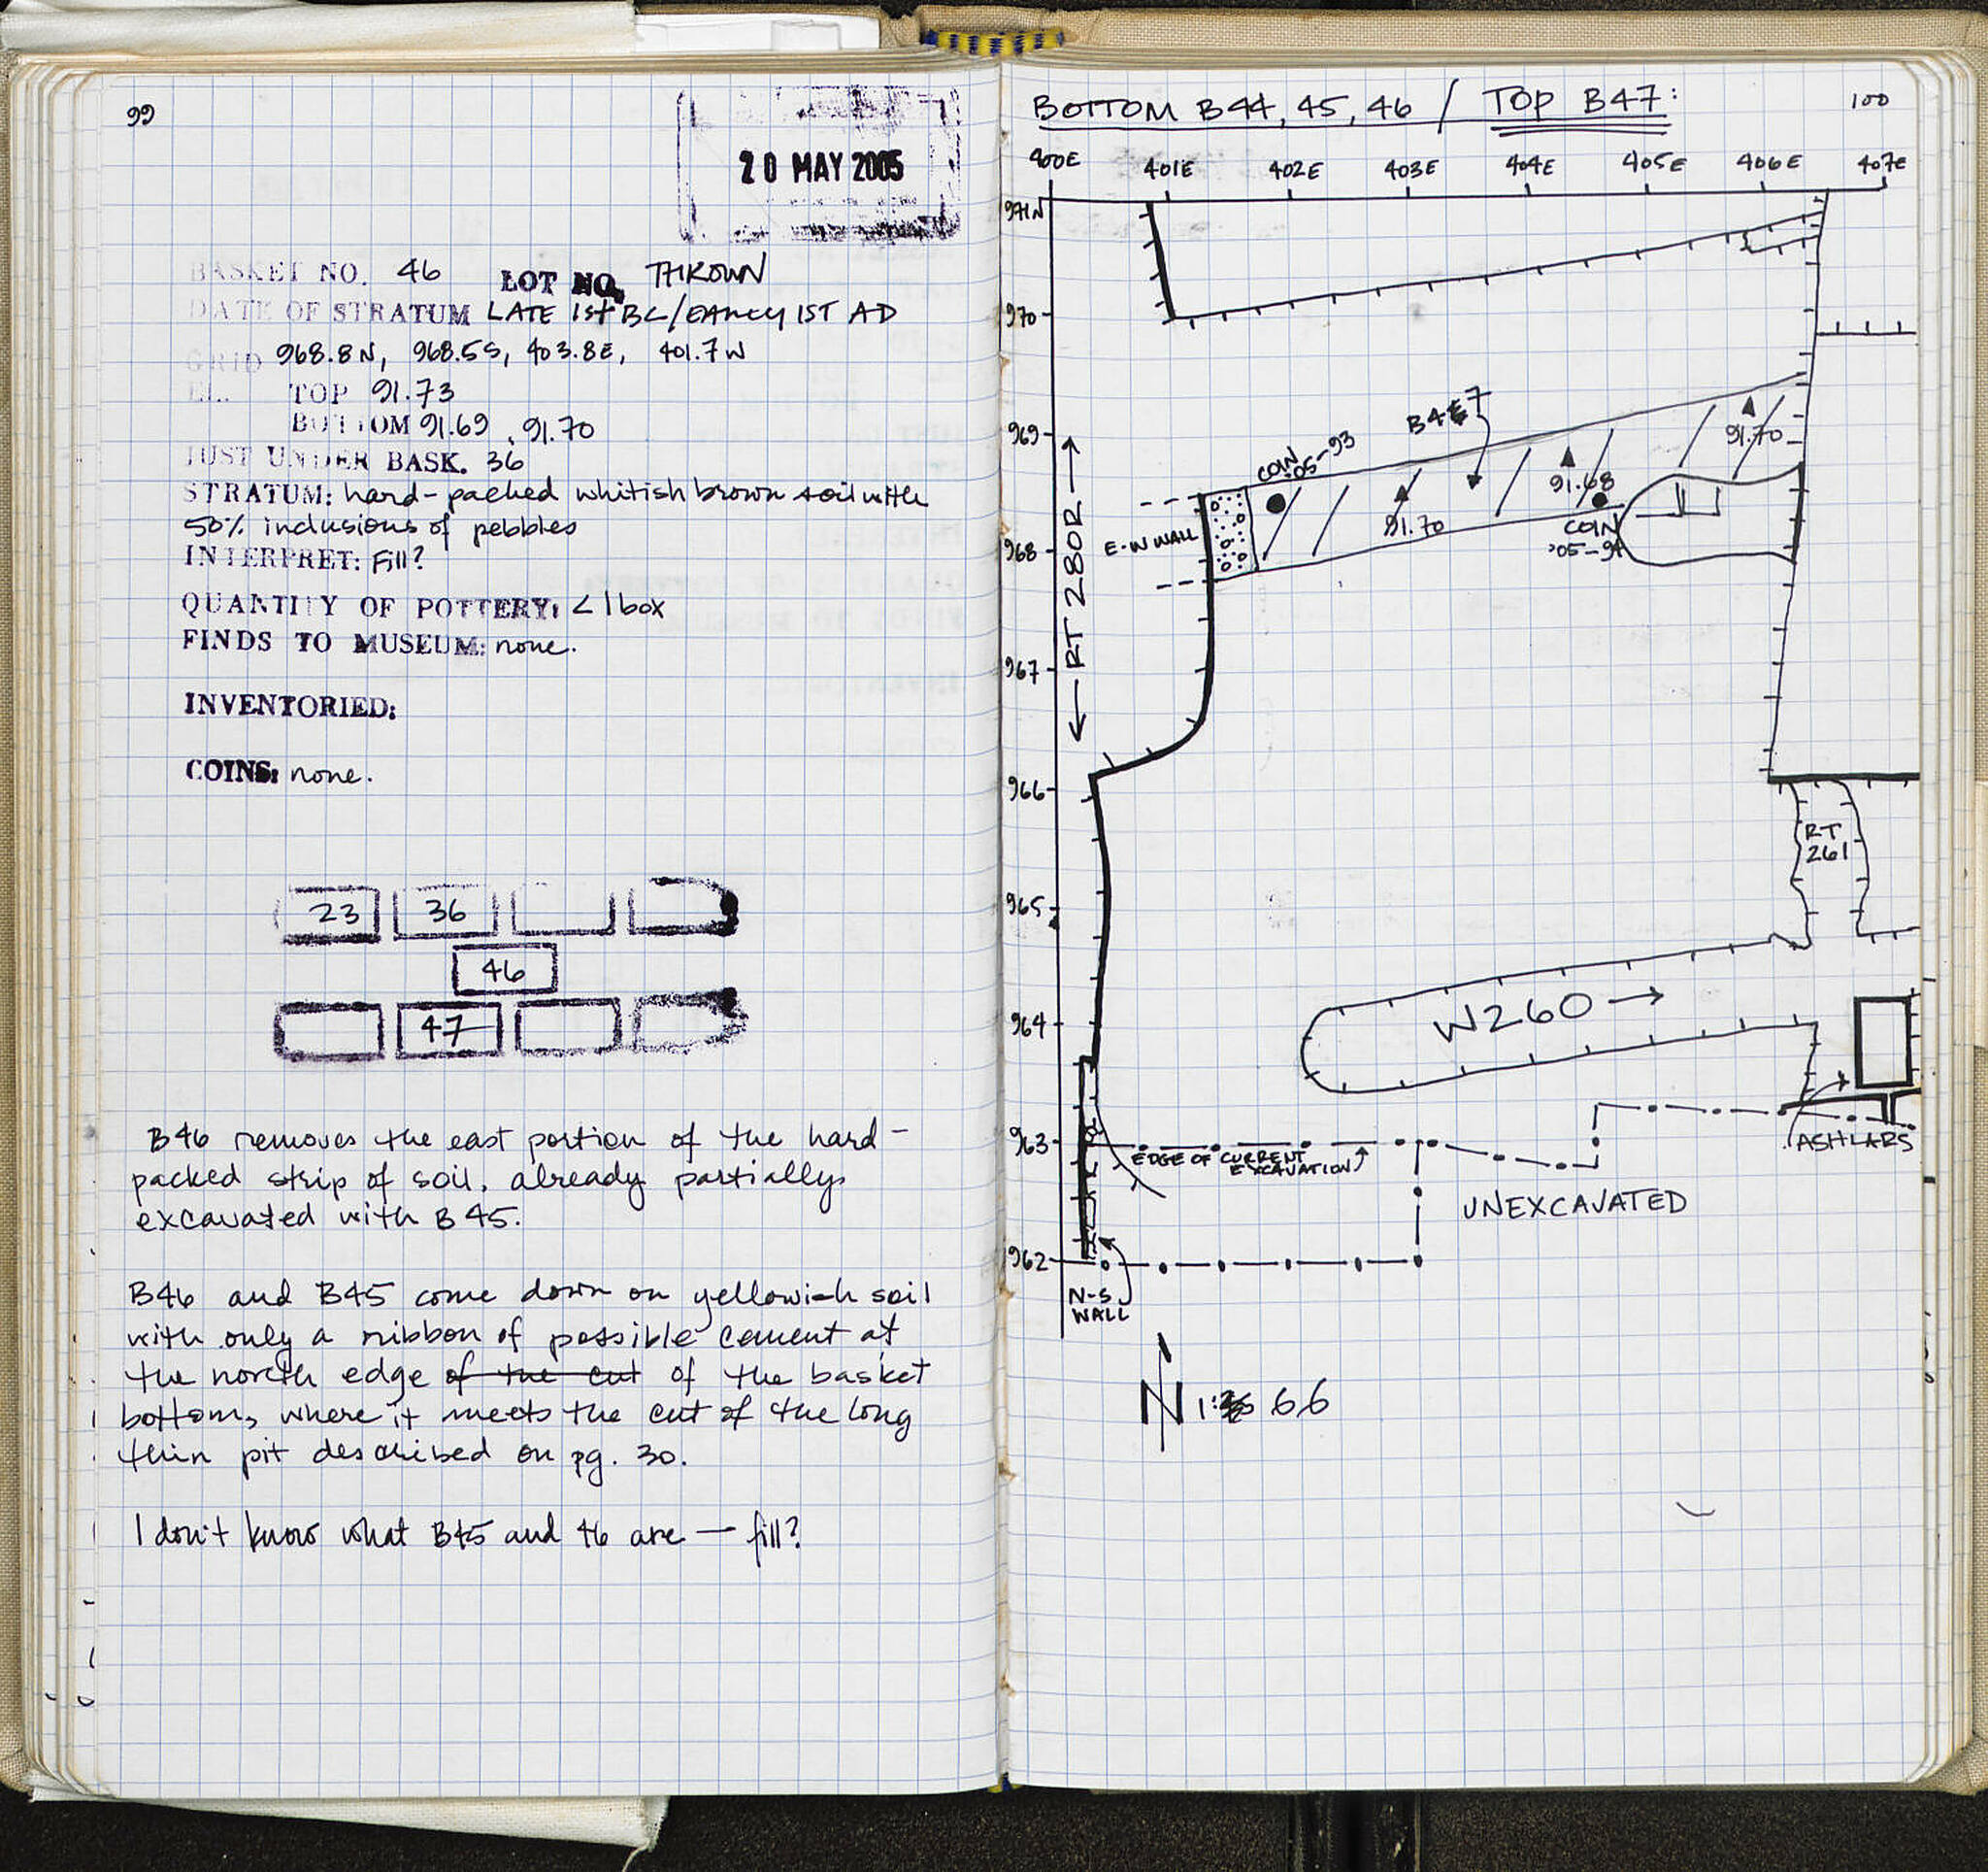 99
20 MAY 2005
BASKET NO. 46 LOT NO. THROWN
DATE OF STRATUM LATE 1st BC/EARLY 1ST AD
GRID 968.8N, 968.5S, 403.8E, 401.7W
EL. TOP 91.73
BOTTOM 91.69, 91.70
JUST UNDER BASK. 36
STRATUM: hard-packed whitish brown soil with
50% inclusions of pebbles
INTERPRET: Fill?
QUANTITY OF POTTERY: <1 box
FINDS TO MUSEUM: none.
INVENTORIED:
COINS: none.
23 36
46
47
B46 removes the east portion of the hard-
packed strip of soil, already partially
excavated with B45.
B46 and B45 come down on yellowish soil
with only a ribbon of possible cement at
the north edge of the cut of the basket
bottom, where it meets the cut of the long
thin pit described on pg. 30.
I don't know what B45 and 46 are — fill?
BOTTOM B44, 45, 46 / TOP B47:
100
400E 401E 402E 403E 404E 405E 406E 407E
971N
970
969
COIN '05-93
B47
91.70
91.68
91.70
COIN
'05-94
E-W WALL
968
← RT 280R →
967
966
RT
261
965
964
W260 →
963
EDGE OF CURRENT
EXCAVATION
ASHLARS
UNEXCAVATED
962
N-S
WALL
N 1:66